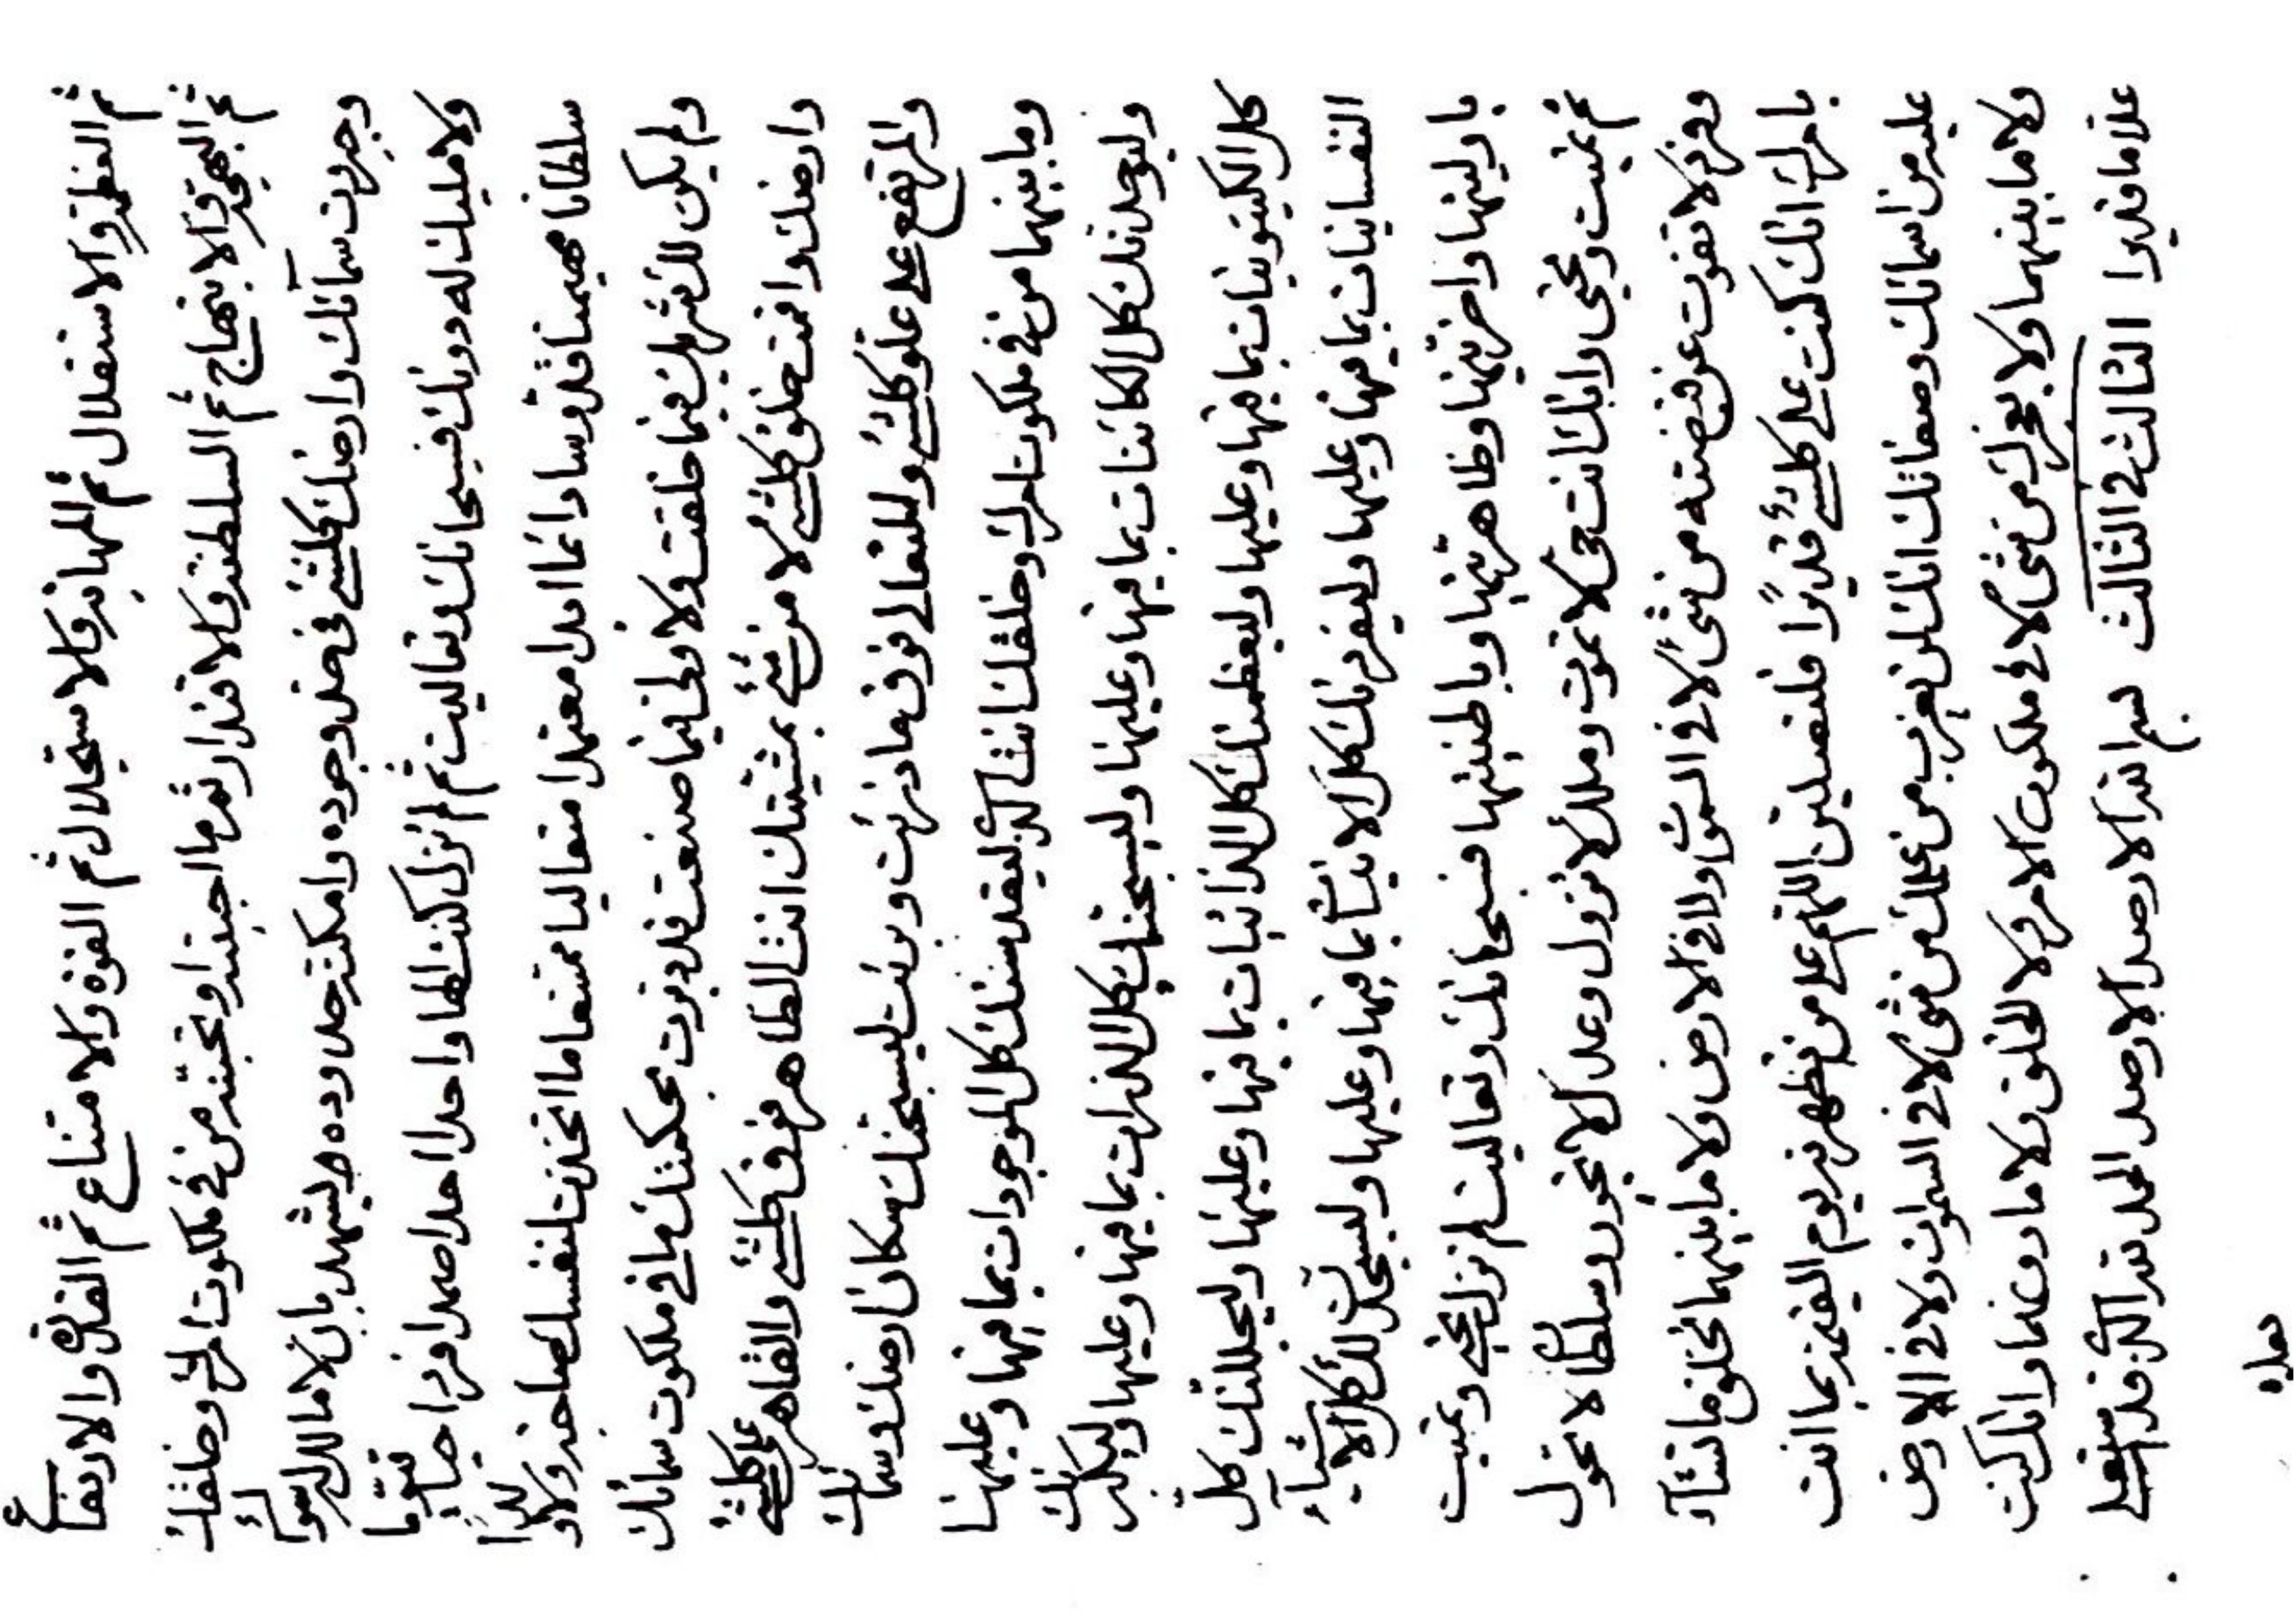 ثم العظمة والاستقلال ثم المهابة والاستجلال ثم القوة والامتناع ثم القدرة والارتفاع
ثم البهجة والابتهاج ثم السلطنة والاقتدار ثم ما احببته او تحبنه من في ملكوت امرك وخلقك
وجبروت سمائك وارضك كلشئ في حد وجوده وامكنة حدوده ليشهد بان لا مالك له سواك
ولا مليك له دونك فسبحانك وتعاليت ثم لم تزل كنت الها واحدا احدا صمدا فردا حيا قيوما
سلطانا مهيمنا قدوسا دائما ابدا معتمدا متعاليا ممتنعا ما اتخذت لنفسك صاحبة ولا ولدا
ولم يكن لك شريك فيما خلقت ولا ولي فيما صنعت قد دبرت بحكمتك ما في ملكوت سمائك
وارضك واقمت خلق كلشئ لا من شئ بمشيتك انت الظاهر فوق كلشئ والقاهر على كلشئ
والمرتفع على علو كلشئ والمتعالي فوق ما ذرئت وبرئت ليسبحنك سكان ارضك وسمائك
وما بينهما من في ملكوت امرك وخلقك انت الذي ليقدسنك كل الموجودات بما فيها وعليها
وليوحدنك كل الكائنات بما فيها وعليها وليسبحنك كل الذرات بما فيها وعليها وليكبرنك
كل الكينونيات بما فيها وعليها وليعظمنك كل الذاتيات بما فيها وعليها وليجللنك كل
النفسانيات بما فيها وعليها وليفردنك كل الانيات بما فيها وعليها وليسجدن لك كل الاشياء
باوليتها واخريتها وظاهريتها وباطنيتها فسبحانك وتعاليت لم تزل تحيي وتميت
ثم تميت وتحيي وانك انت حي لا تموت وملك لا تزول وعدل لا تجور وسلطان لا تحول
وفرد لا تفوت عن قبضته من شئ لا في السموات ولا في الارض ولا ما بينهما تخلق ما تشاء
بامرك انك كنت على كلشئ قديرا فلتصلين اللهم على من تظهرنه يوم القيمة بما انت
عليه من اسمائك وصفاتك انك لن يعزب من علمك من شئ لا في السموات ولا في الارض
ولا ما بينهما ولا يعجزك من شئ لا في ملكوت الامر ولا الخلق ولا ما دونهما وانك كنت
علاما قديرا الثالث في الثالث بسم الله الارصد الارصد الحمد لله الذي قد استعلى
بعلوه